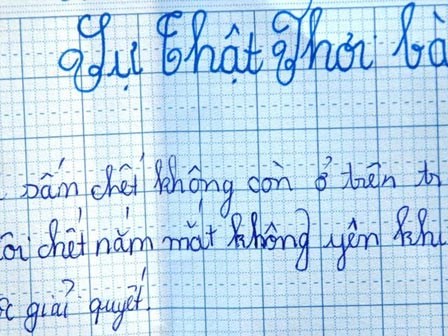 Sự Thật Phơi bà
chết không còn ở trên tr
ôi chết nằm mắt không yên khi
c giải quyết.